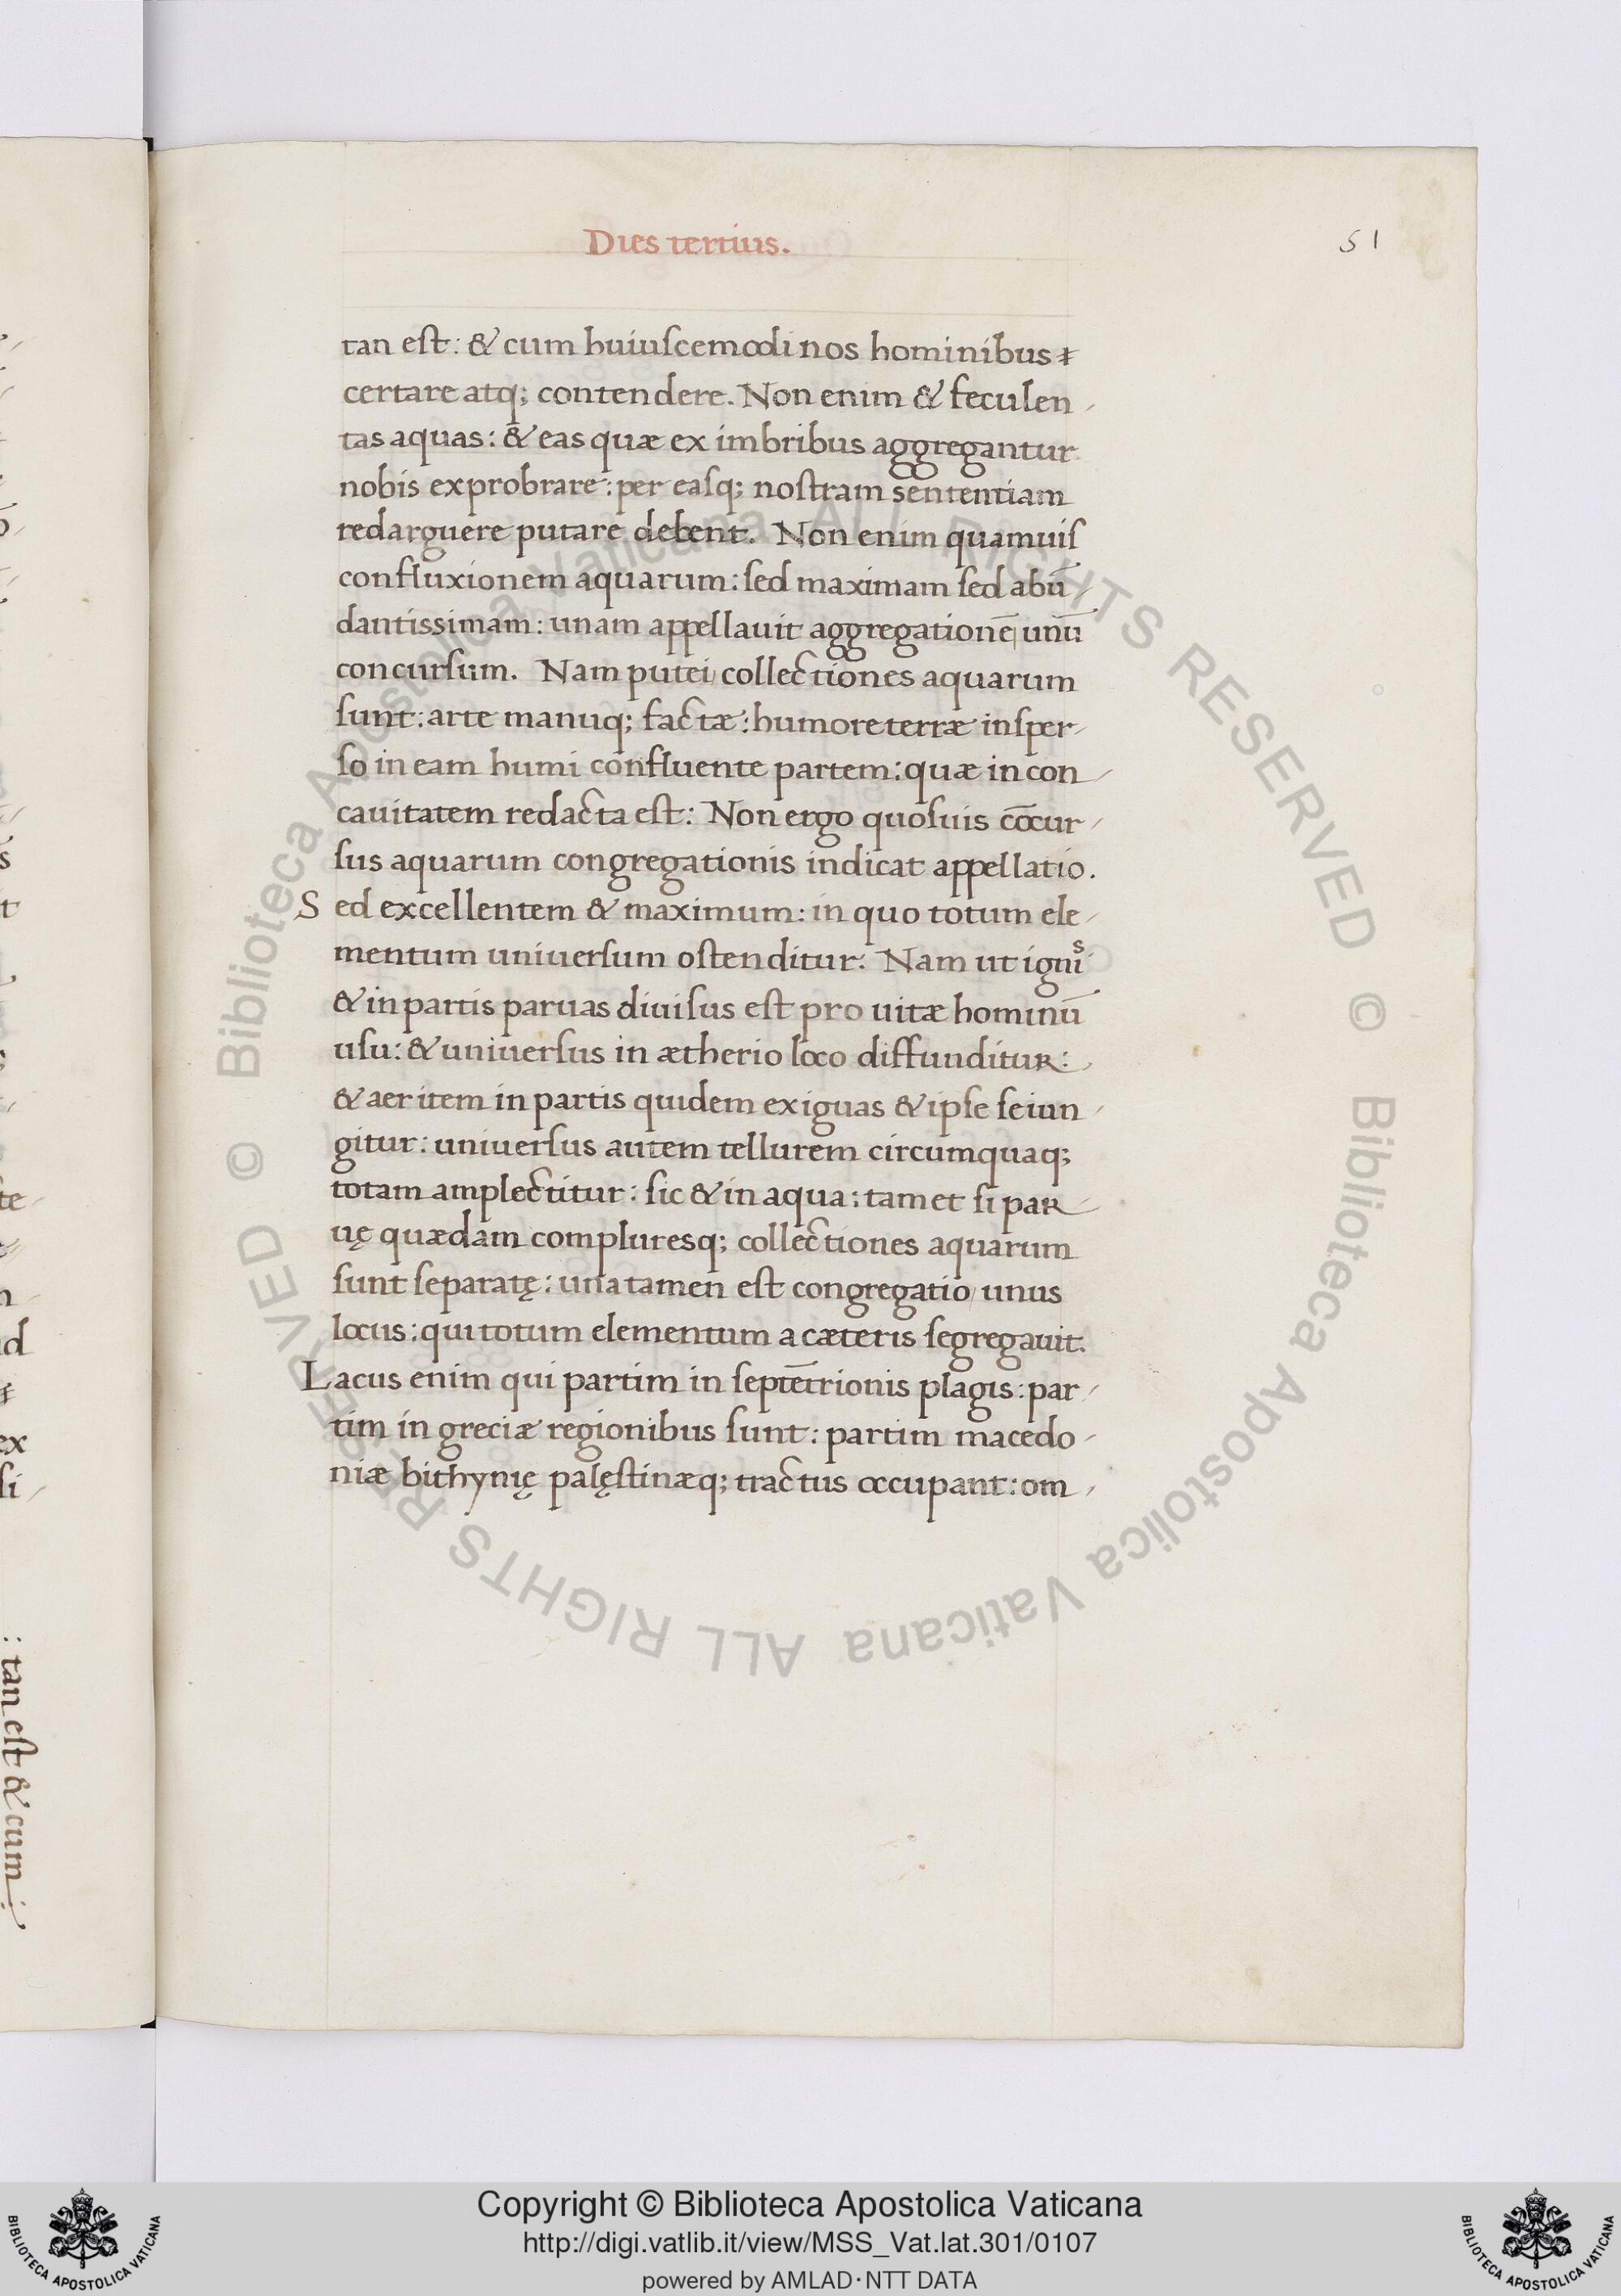 Dies tertius.
51
tan est: & cum huiuscemodi nos hominibus
certare atq; contendere. Non enim & feculen
tas aquas: & eas quæ ex imbribus aggregantur
nobis exprobrare: per easq; nostram sententiam
redarguere putare debent. Non enim quamuis
confluxionem aquarum: sed maximam sed abū
dantissimam: unam appellauit aggregationē unū
concursum. Nam putei collectiones aquarum
sunt: arte manuq; factæ: humore terræ insper
so in eam humi confluente partem: quæ in con
cauitatem redacta est: Non ergo quosuis cōcur
sus aquarum congregationis indicat appellatio.
Sed excellentem & maximum: in quo totum ele
mentum uniuersum ostenditur: Nam ut ignis
& in partis paruas diuisus est pro uitæ hominū
usu: & uniuersus in ætherio loco diffunditur:
& aer item in partis quidem exiguas & ipse seiun
gitur: uniuersus autem tellurem circumquaq;
totam amplectitur: sic & in aqua: tamet si par
uę quædam compluresq; collectiones aquarum
sunt separatę: una tamen est congregatio unus
locus: qui totum elementum a cæteris segregauit.
Lacus enim qui partim in septētrionis plagis: par
tim in greciæ regionibus sunt: partim macedo
niæ bithynię palęstinæq; tractus occupant: om
: tan est & cum
© Biblioteca Apostolica Vaticana ALL RIGHTS RESERVED © Biblioteca Apostolica Vaticana ALL RIGHTS RESERVED
Copyright © Biblioteca Apostolica Vaticana
http://digi.vatlib.it/view/MSS_Vat.lat.301/0107
powered by AMLAD·NTT DATA
BIBLIOTECA APOSTOLICA VATICANA
BIBLIOTECA APOSTOLICA VATICANA